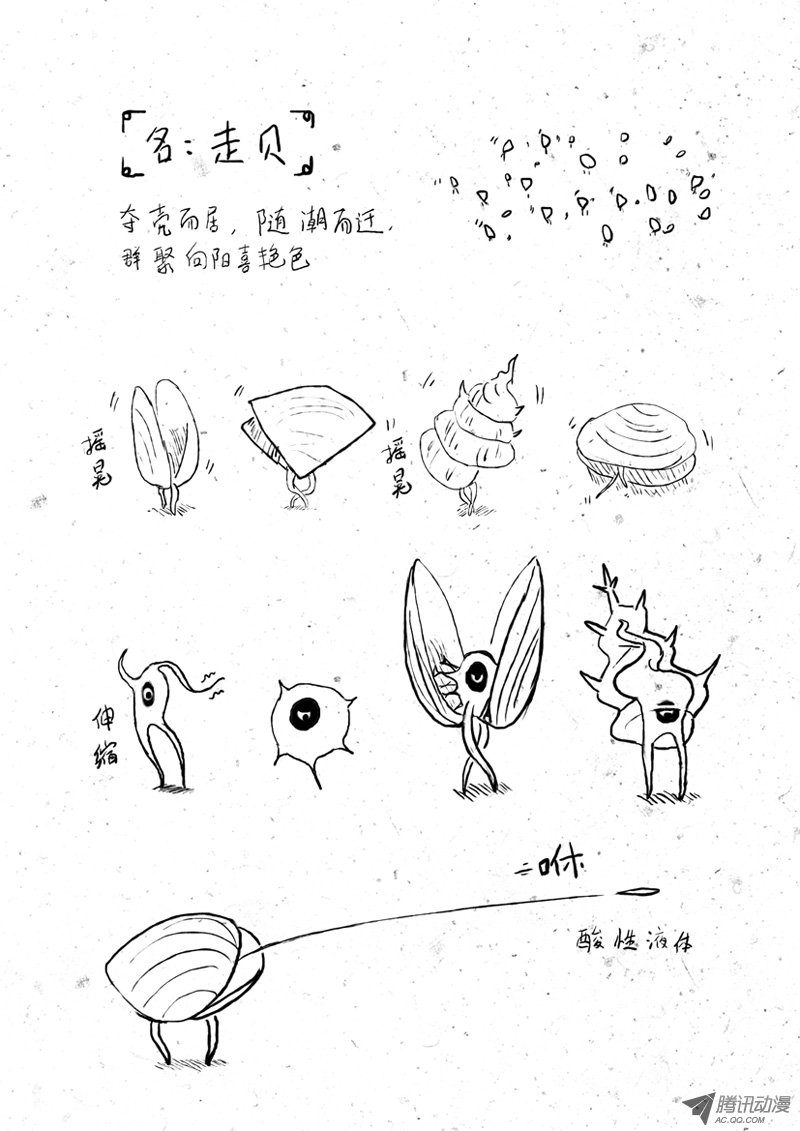 名：走贝
夺壳而居，随潮而迁．
群聚向阳喜艳色
摇晃
摇晃
伸缩
咻
酸性液体
腾讯动漫
AC.QQ.COM